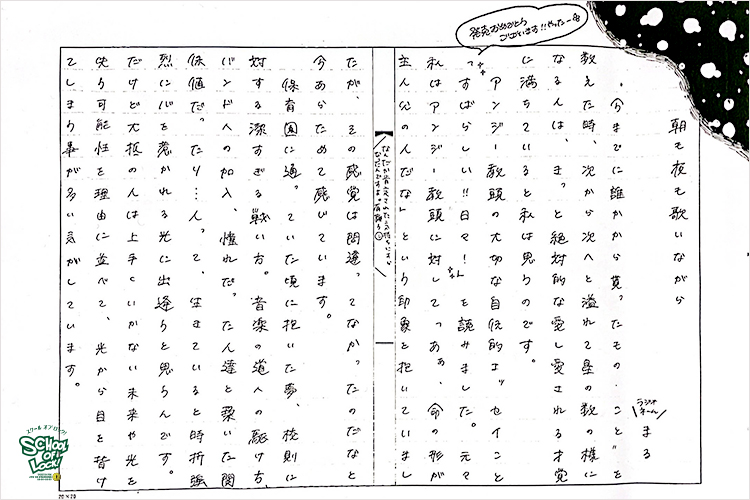 発売おめでとう
ございます!!やったー☆
朝も夜も歌いながら
ラジオネーム
まる
今までに誰かから貰ったもの・ことを
数えた時、次から次へと溢れて星の数の様に
なる人は、きっと絶対的な愛し愛される才覚
に満ちていると私は思うのです。
アンジー教頭の大切な自伝的エッセイこと
「すばらしい!!日々!」を読みました。元々
私はアンジー教頭に対して「あぁ、命の形が
主人公の人だな」という印象を抱いていまし
なんだか肯定された気持ちにすら
なったんですよ。
たが、その感覚は間違ってなかったのだなと
今あらためて感じています。
保育園に通っていた頃に抱いた夢、校則に
対する潔すぎる戦い方。音楽の道への駆け方、
バンドへの加入、憧れだった人達と築いた関
係値だったり…人って、生きていると時折強
烈に心を惹かれる光に出逢うと思うんです。
だけど大抵の人は上手くいかない未来や光を
失う可能性を理由に並べて、光から目を背け
てしまう事が多い気がしています。
スクール オブ ロック!
SCHOOL
OF
LOCK!
20×20